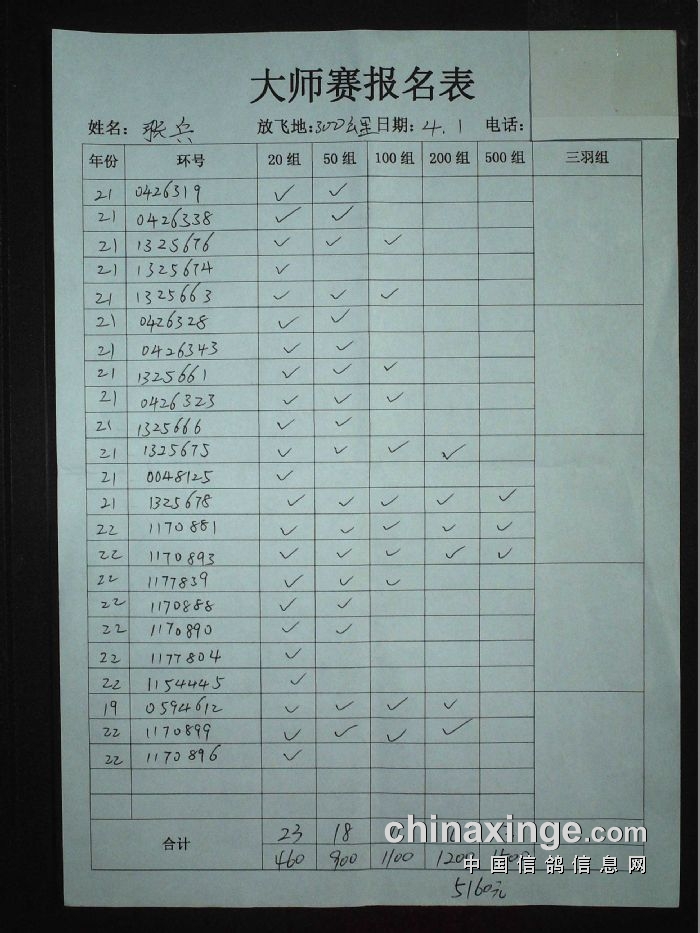 大师赛报名表
姓名：张兵 放飞地:300公里 日期: 4.1 电话：
年份 环号 20 组 50 组 100 组 200 组 500 组 三羽组
21 0426319 ✓ ✓
21 0426338 ✓ ✓
21 1325676 ✓ ✓ ✓
21 1325674 ✓
21 1325663 ✓ ✓ ✓
21 0426328 ✓ ✓
21 0426343 ✓ ✓
21 1325661 ✓ ✓ ✓
21 0426323 ✓ ✓ ✓
21 1325666 ✓ ✓
21 1325675 ✓ ✓ ✓ ✓
21 0048125 ✓
21 1325678 ✓ ✓ ✓ ✓ ✓
22 1170881 ✓ ✓ ✓ ✓ ✓
22 1170893 ✓ ✓ ✓ ✓ ✓
22 1177839 ✓ ✓ ✓
22 1170888 ✓ ✓
22 1170890 ✓ ✓
22 1177804 ✓
22 1154445 ✓
19 0594612 ✓ ✓ ✓ ✓
22 1170899 ✓ ✓ ✓ ✓
22 1170896 ✓
合计 23 18
460 900 1100 1200
5160元
chinaxinge.com
中国信鸽信息网